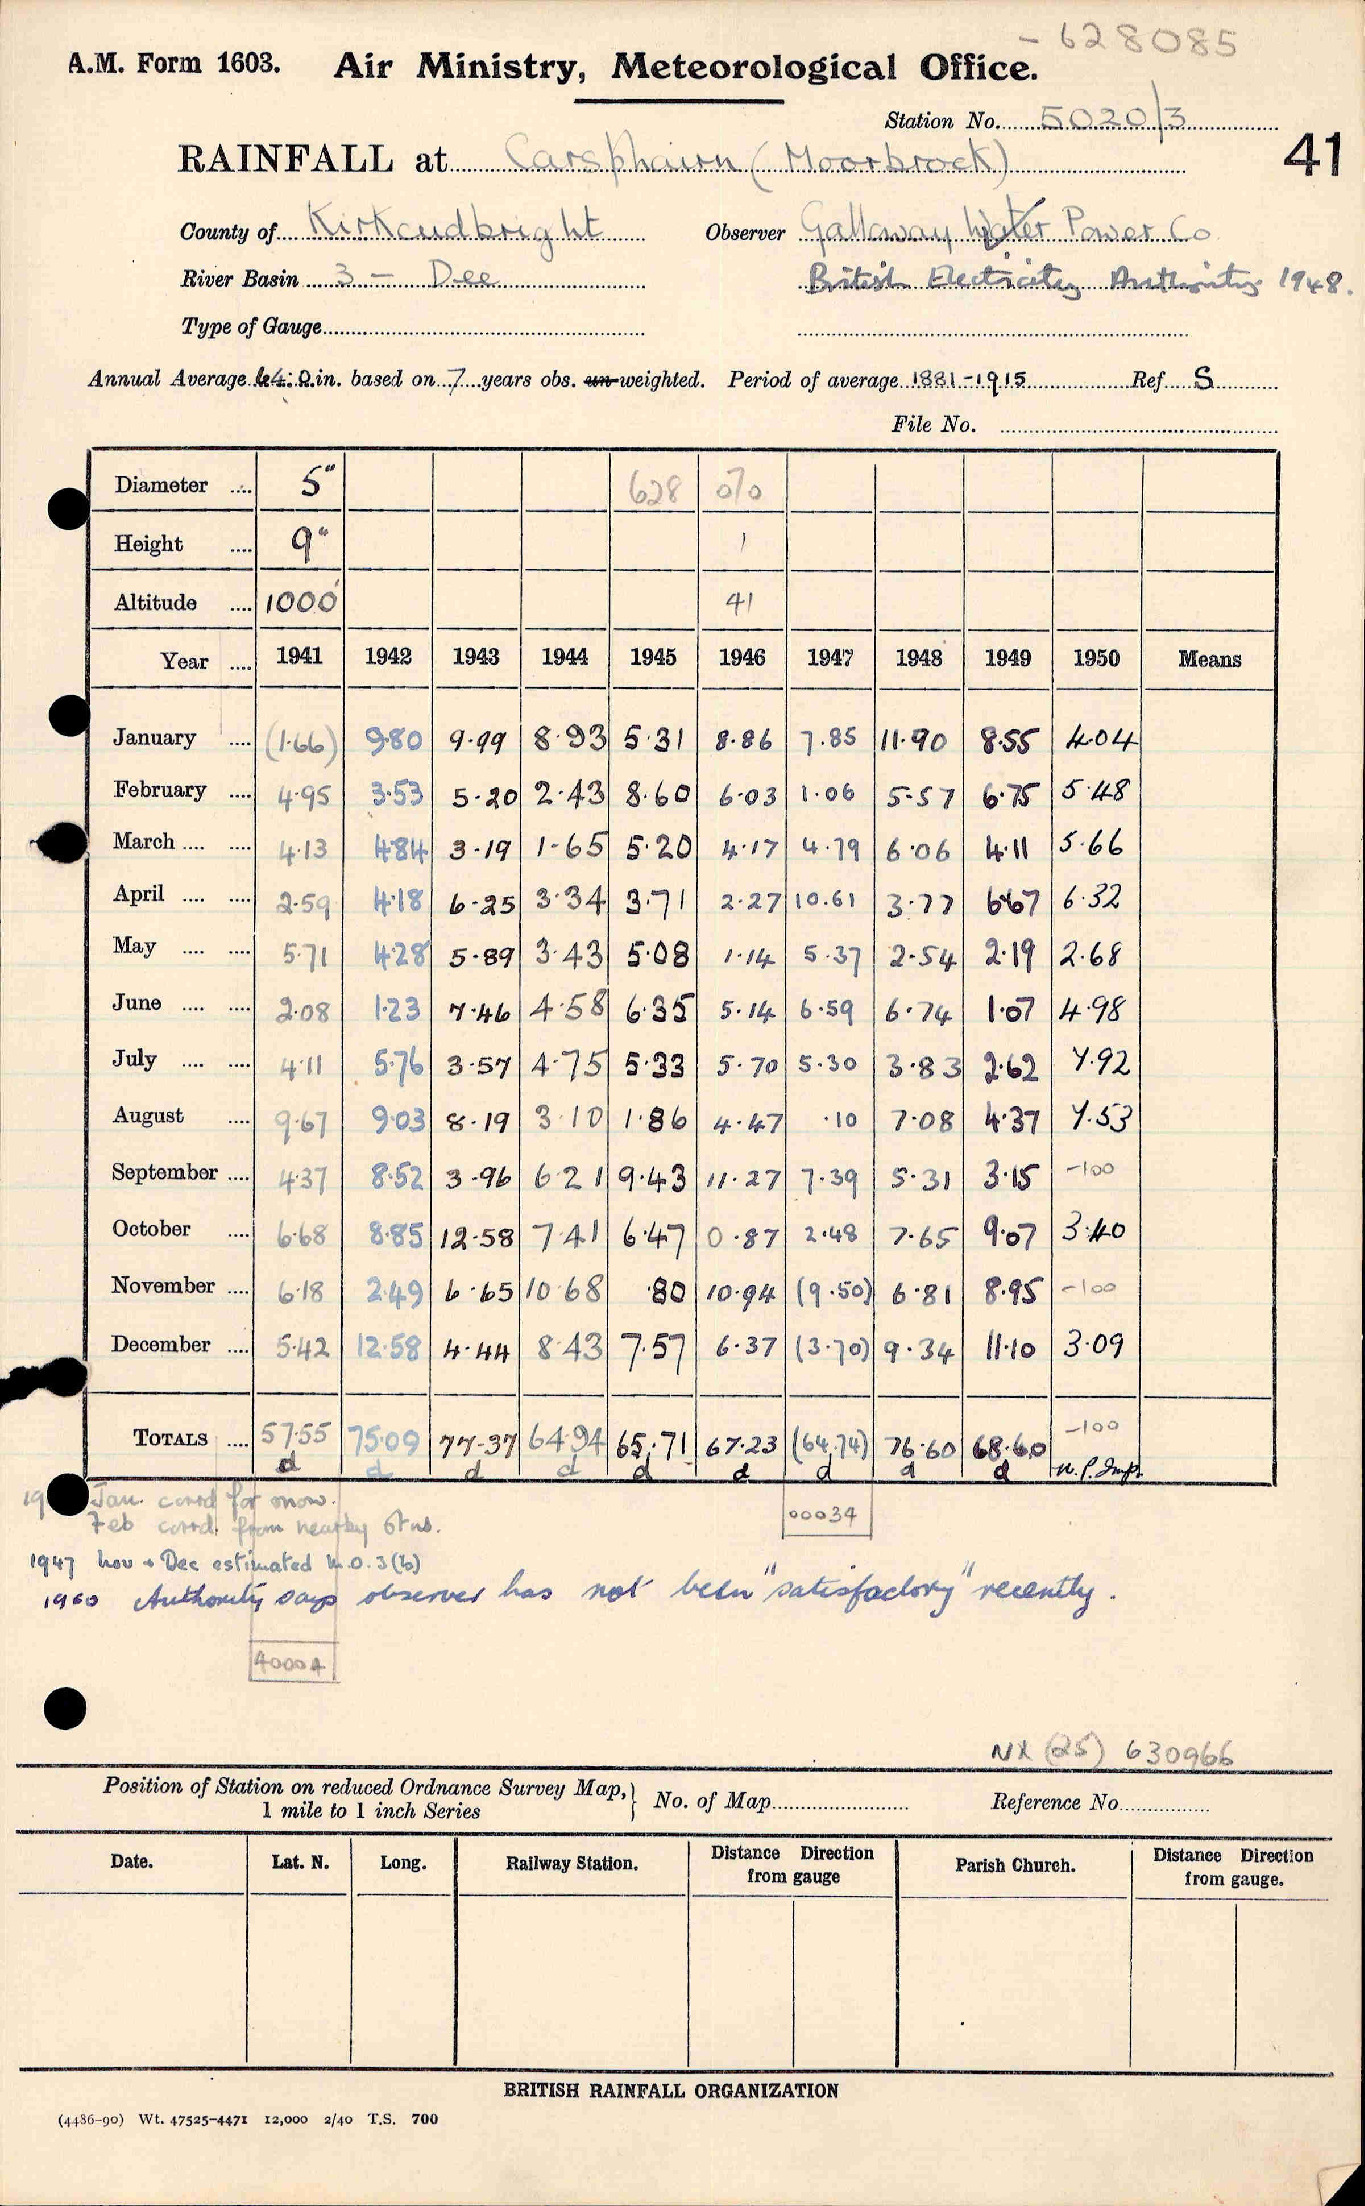 - 628085
A.M. Form 1603. Air Ministry, Meteorological Office.
Station No. 5020/3
41
RAINFALL at Carsphairn (Moorbrock)
County of Kirkcudbright Observer Galloway Water Power Co
River Basin 3 - Dee British Electricity Authority 1948.
Type of Gauge
Annual Average 64.0 in. based on 7 years obs. un-weighted. Period of average 1881-1915 Ref. S
File No.
Diameter .... 5" 628 070
Height .... 9" 1
Altitude .... 1000' 41
Year .... 1941 1942 1943 1944 1945 1946 1947 1948 1949 1950 Means
January .... (1.66) 9.80 9.99 8.93 5.31 8.86 7.85 11.90 8.55 4.04
February .... 4.95 3.53 5.20 2.43 8.60 6.03 1.06 5.57 6.75 5.48
March .... .... 4.13 4.84 3.19 1.65 5.20 4.17 4.79 6.06 4.11 5.66
April .... .... 2.59 4.18 6.25 3.34 3.71 2.27 10.61 3.77 6.67 6.32
May .... .... 5.71 4.28 5.89 3.43 5.08 1.14 5.37 2.54 2.19 2.68
June .... .... 2.08 1.23 7.46 4.58 6.35 5.14 6.59 6.74 1.07 4.98
July .... .... 4.11 5.76 3.57 4.75 5.33 5.70 5.30 3.83 2.62 7.92
August .... 9.67 9.03 8.19 3.10 1.86 4.47 .10 7.08 4.37 7.53
September .... 4.37 8.52 3.96 6.21 9.43 11.27 7.39 5.31 3.15 -100
October .... 6.68 8.85 12.58 7.41 6.47 0.87 2.48 7.65 9.07 3.40
November .... 6.18 2.49 6.65 10.68 .80 10.94 (9.50) 6.81 8.95 -100
December .... 5.42 12.58 4.44 8.43 7.57 6.37 (3.70) 9.34 11.10 3.09
TOTALS .... 57.55 75.09 77.37 64.94 65.71 67.23 (64.74) 76.60 68.60 -100
d d d d d d d d d n.p. Imp.
Jan. corrd for snow.
00034
Feb corrd. from nearby stns.
1947 Nov + Dec estimated M.O.3(b)
1950 Authority says observer has not been "satisfactory" recently.
40004
NX (25) 630966
Position of Station on reduced Ordnance Survey Map, 1 mile to 1 inch Series } No. of Map Reference No.
Date. Lat. N. Long. Railway Station. Distance Direction from gauge Parish Church. Distance Direction from gauge.
BRITISH RAINFALL ORGANIZATION
(4486-90) Wt. 47525-4471 12,000 2/40 T.S. 700